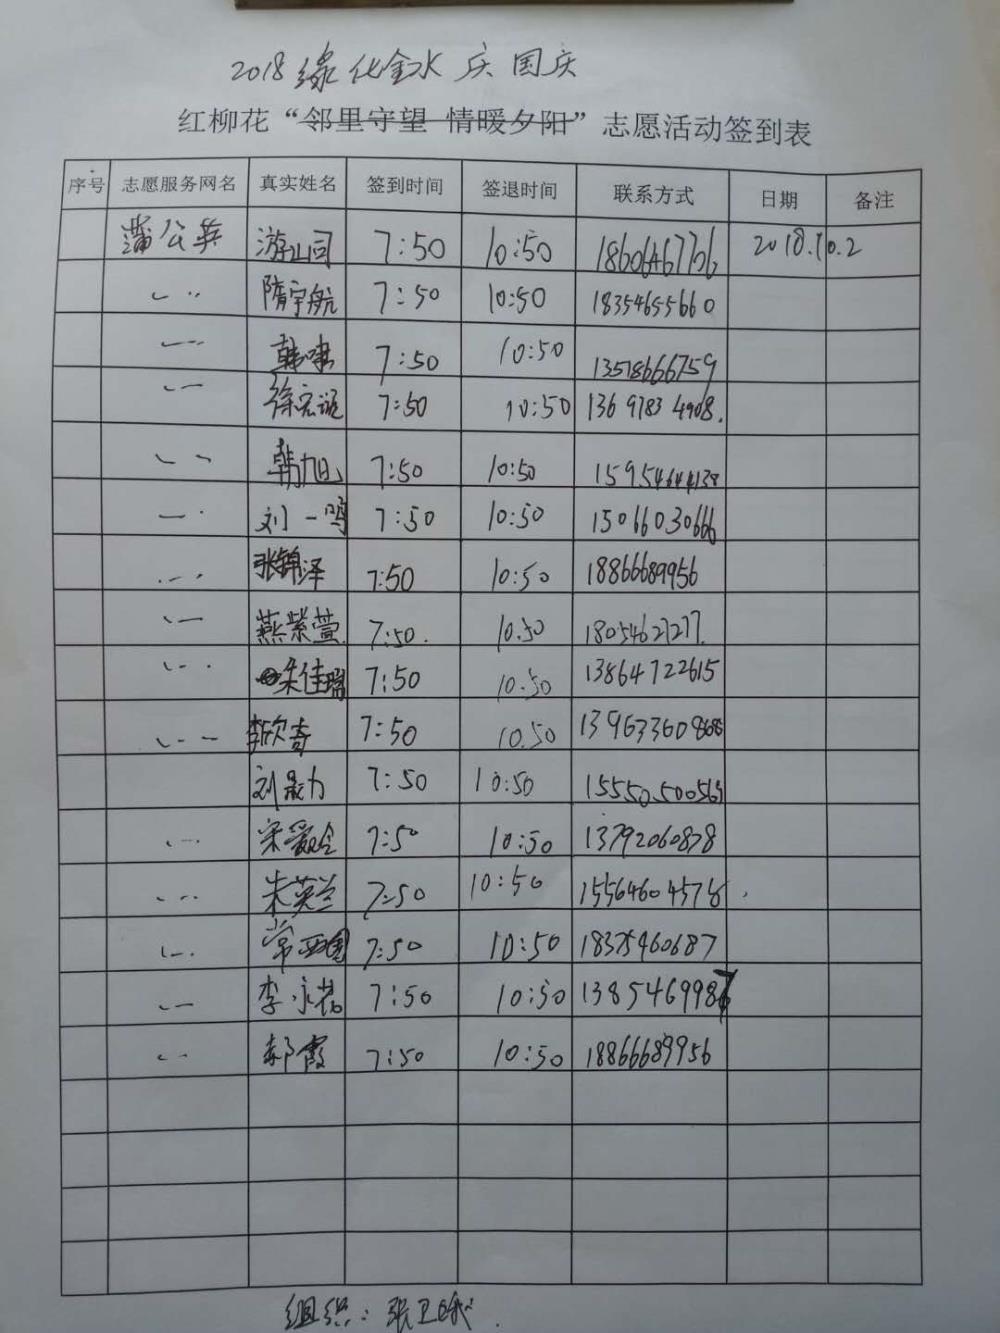 2018 绿化金水 庆国庆
红柳花“邻里守望 情暖夕阳”志愿活动签到表
序号 志愿服务网名 真实姓名 签到时间 签退时间 联系方式 日期 备注
蒲公英 7:50 10:50 18606467706 2018.10.2
隋宇航 7:50 10:50 18354655660
韩啸 7:50 10:50 13518666759
7:50 10:50 13697834908.
韩旭 7:50 10:50 15954644138
刘一鸣 7:50 10:50 15066030666
张锦泽 7:50 10:50 18866689956
燕紫萱 7:50. 10.50 18054627277.
朱佳瑞 7:50 10.50 13864722615
李欣奇 7:50 10.50 13963360868
刘晟力 7:50 10:50 15550500565
宋爱玲 7:50 10:50 13792060878
朱英兰 7:50 10:50 15564604578
常西国 7:50 10:50 18375460687
李永茗 7:50 10:50 1385469987
郝霞 7:50 10:50 18866689956
组织：张卫